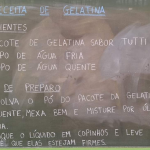 RECEITA DE GELATINA
IENTES
COTE DE GELATINA SABOR TUTTI
PO DE ÁGUA FRIA
PO DE ÁGUA QUENTE
DE PREPARO
OLVA O PÓ DO PACOTE DA GELAT
UENTE, MEXA BEM E MISTURE POR
IA.
QUE O LÍQUIDO EM COPINHOS E LEVE
QUE ELAS ESTEJAM FIRMES.